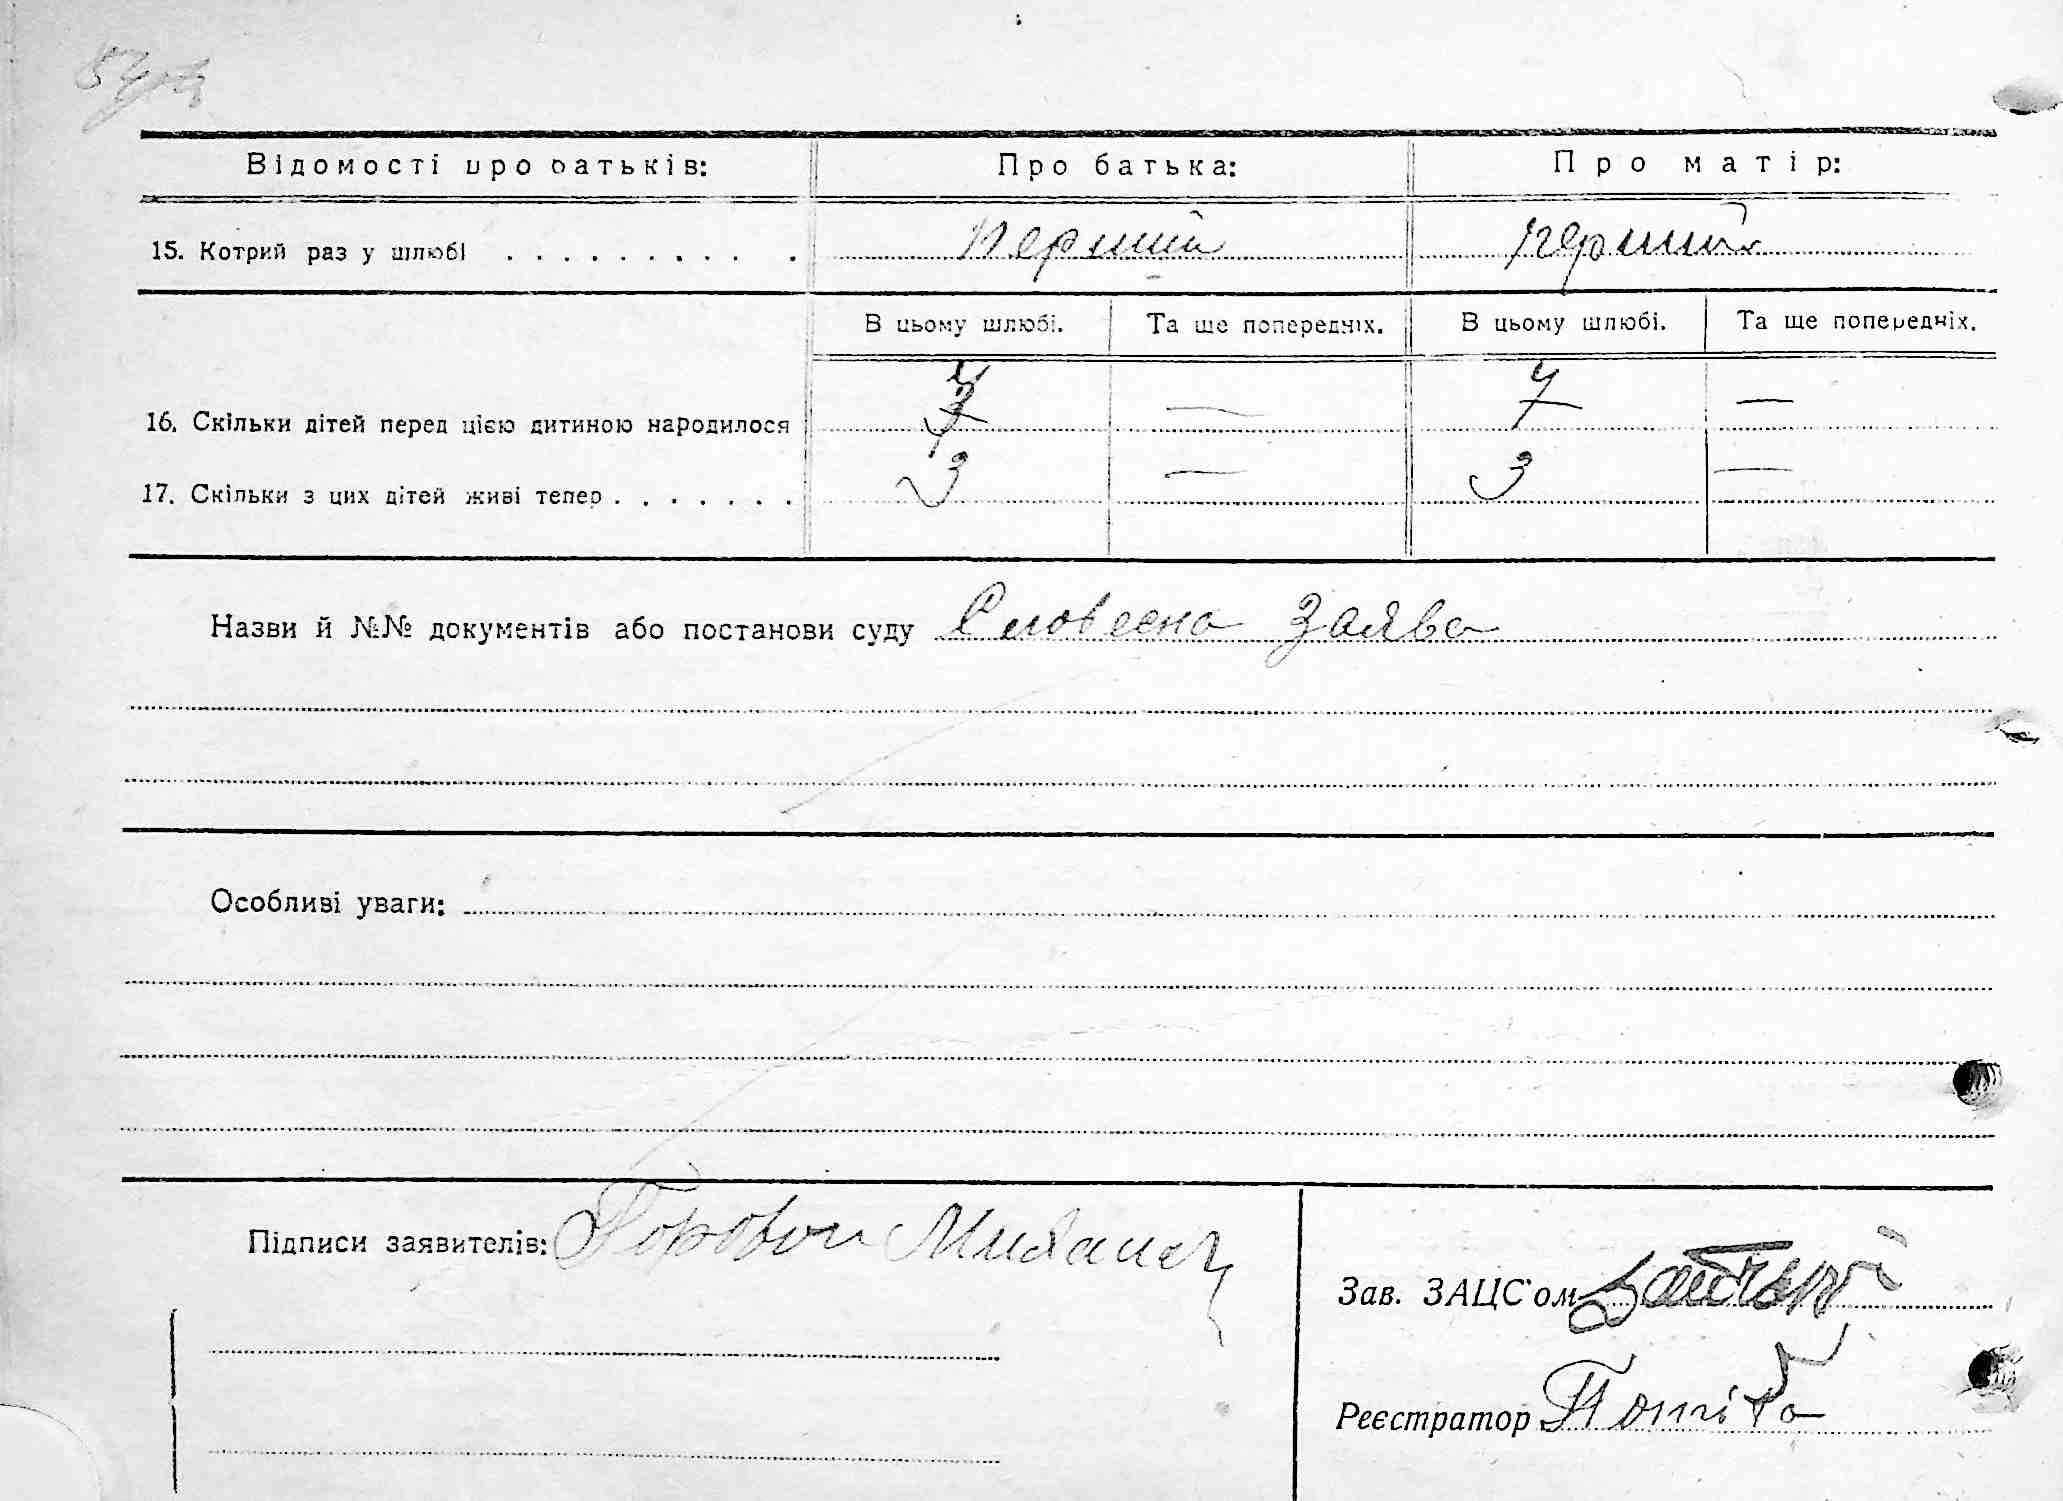 Відомості про батьків: Про батька: Про матір:
15. Котрий раз у шлюбі . . . . . . . . . . . перший перший
В цьому шлюбі. Та ще попередніх. В цьому шлюбі. Та ще попередніх.
16. Скільки дітей перед цією дитиною народилося — —
17. Скільки з цих дітей живі тепер . . . . . . . 3 — 3 —
Назви й №№ документів або постанови суду Словесна Заява
Особливі уваги:
Підписи заявителів:
Зав. ЗАЦС'ом
Реєстратор